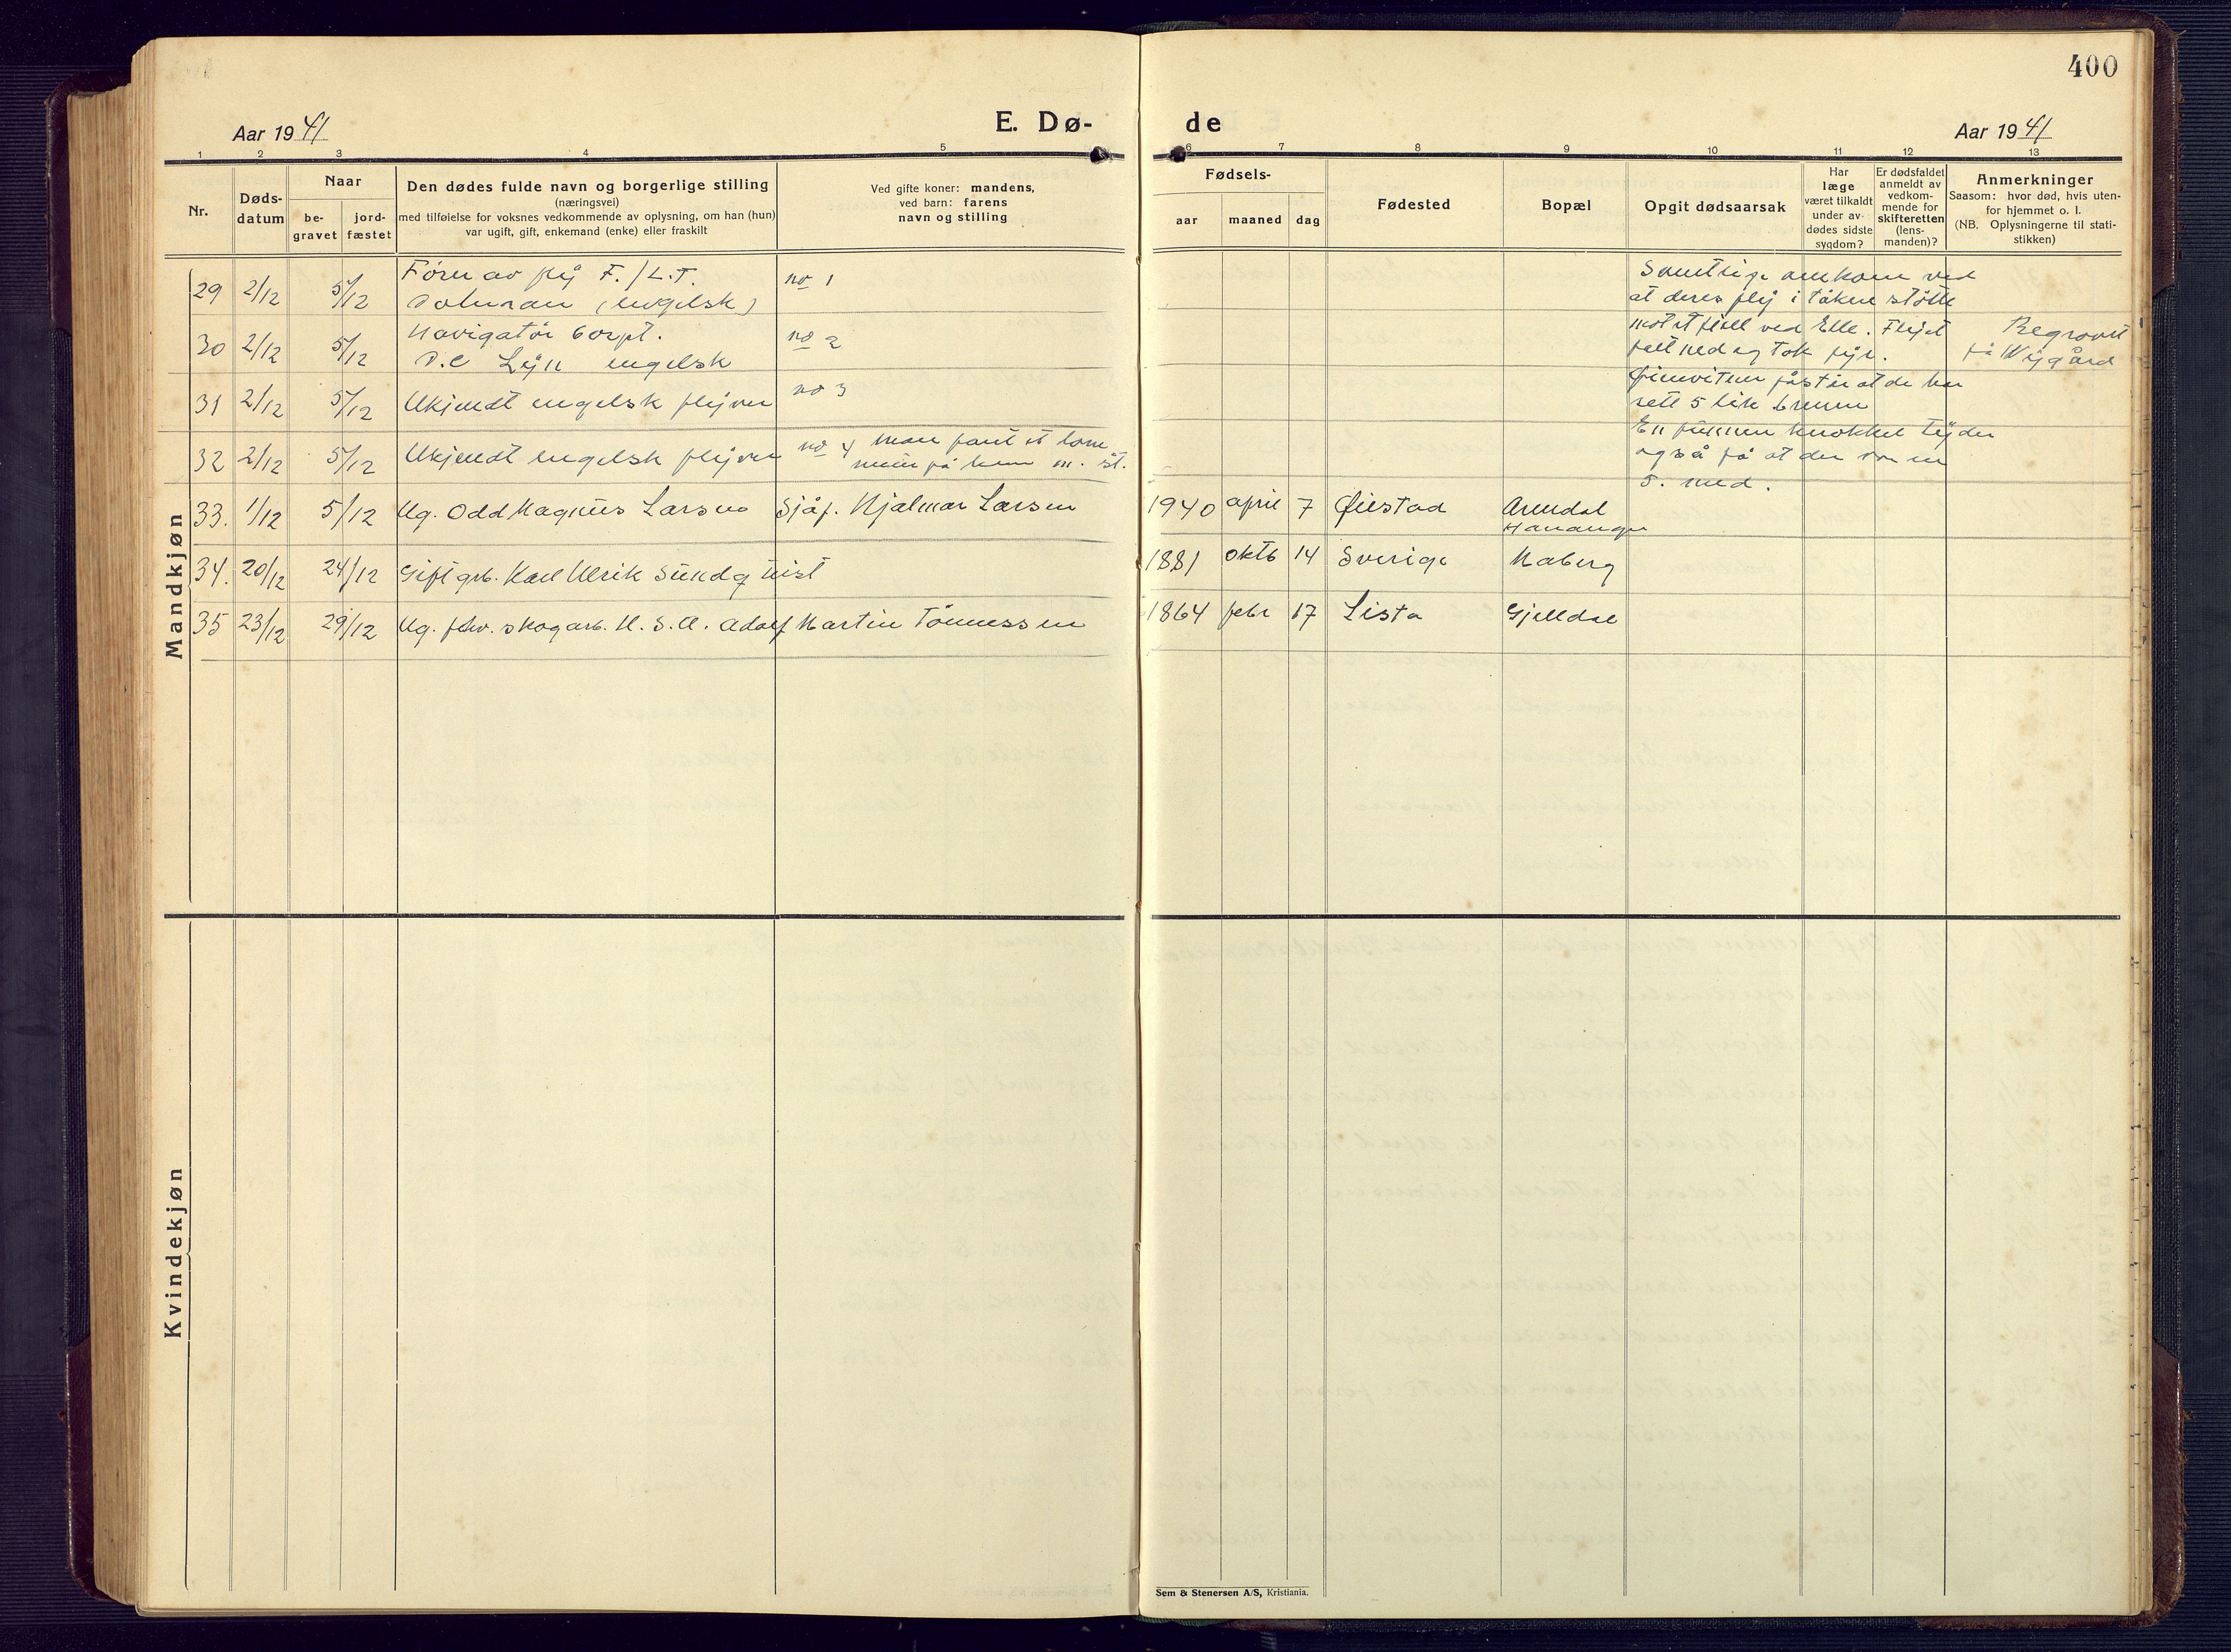 400
Aar 1941
E. Dø-
de
Aar 1941
1 2 3 4 5 6 7 8 9 10 11 12 13
Nr.
Døds-
datum
Naar
be-
gravet
jord-
fæstet
Den dødes fulde navn og borgerlige stilling
(næringsvei)
med tilføielse for voksnes vedkommende av oplysning, om han (hun)
var ugift, gift, enkemand (enke) eller fraskilt
Ved gifte koner: mandens,
ved barn: farens
navn og stilling
Fødsels-
aar maaned dag
Fødested
Bopæl
Opgit dødsaarsak
Har
læge
været tilkaldt
under av-
dødes sidste
sygdom?
Er dødsfaldet
anmeldt av
vedkom-
mende for
skifteretten
(lens-
manden)?
Anmerkninger
Saasom: hvor død, hvis uten-
for hjemmet o. l.
(NB. Oplysningerne til stati-
stikken)
Mandkjøn
29 2/12 5/12 Fører av flÿ F./L.T.
(engelsk)
no 1
30 2/12 5/12 Navigatør Corpt.
D.C Lÿn engelsk
no 2
31 2/12 5/12 Ukjendt engelsk flÿver no 3
32 2/12 5/12 Ukjendt engelsk flÿver no 4 man fant et lomme
på ham m. st.
Samtlige omkom ved
at deres flÿ i tåken støtte
mot et fjell ved Elle. Flÿet
falt ned og tok fÿr.
Øienvitner påstår at de har
sett 5 lik brenne
En funnen knokkel tÿder
også på at der var en
5. med.
Begravet
på Nÿgård
33. 1/12 5/12 Ug. Odd Magnus Larsen Sjåf. Hjalmar Larsen 1940 april 7 Øiestad Arendal
Hananger
34. 20/12 24/12 Gift grb. Karl Ulrik Sundqvist 1881 oktb 14 Sverige Maberg
35 23/12 29/12 Ug. fhv. skogarb. U. S. A. Adolf Martin Tønnessen 1864 febr 17 Lista Gjelldal
Kvindekjøn
Sem & Stenersen A/S, Kristiania.